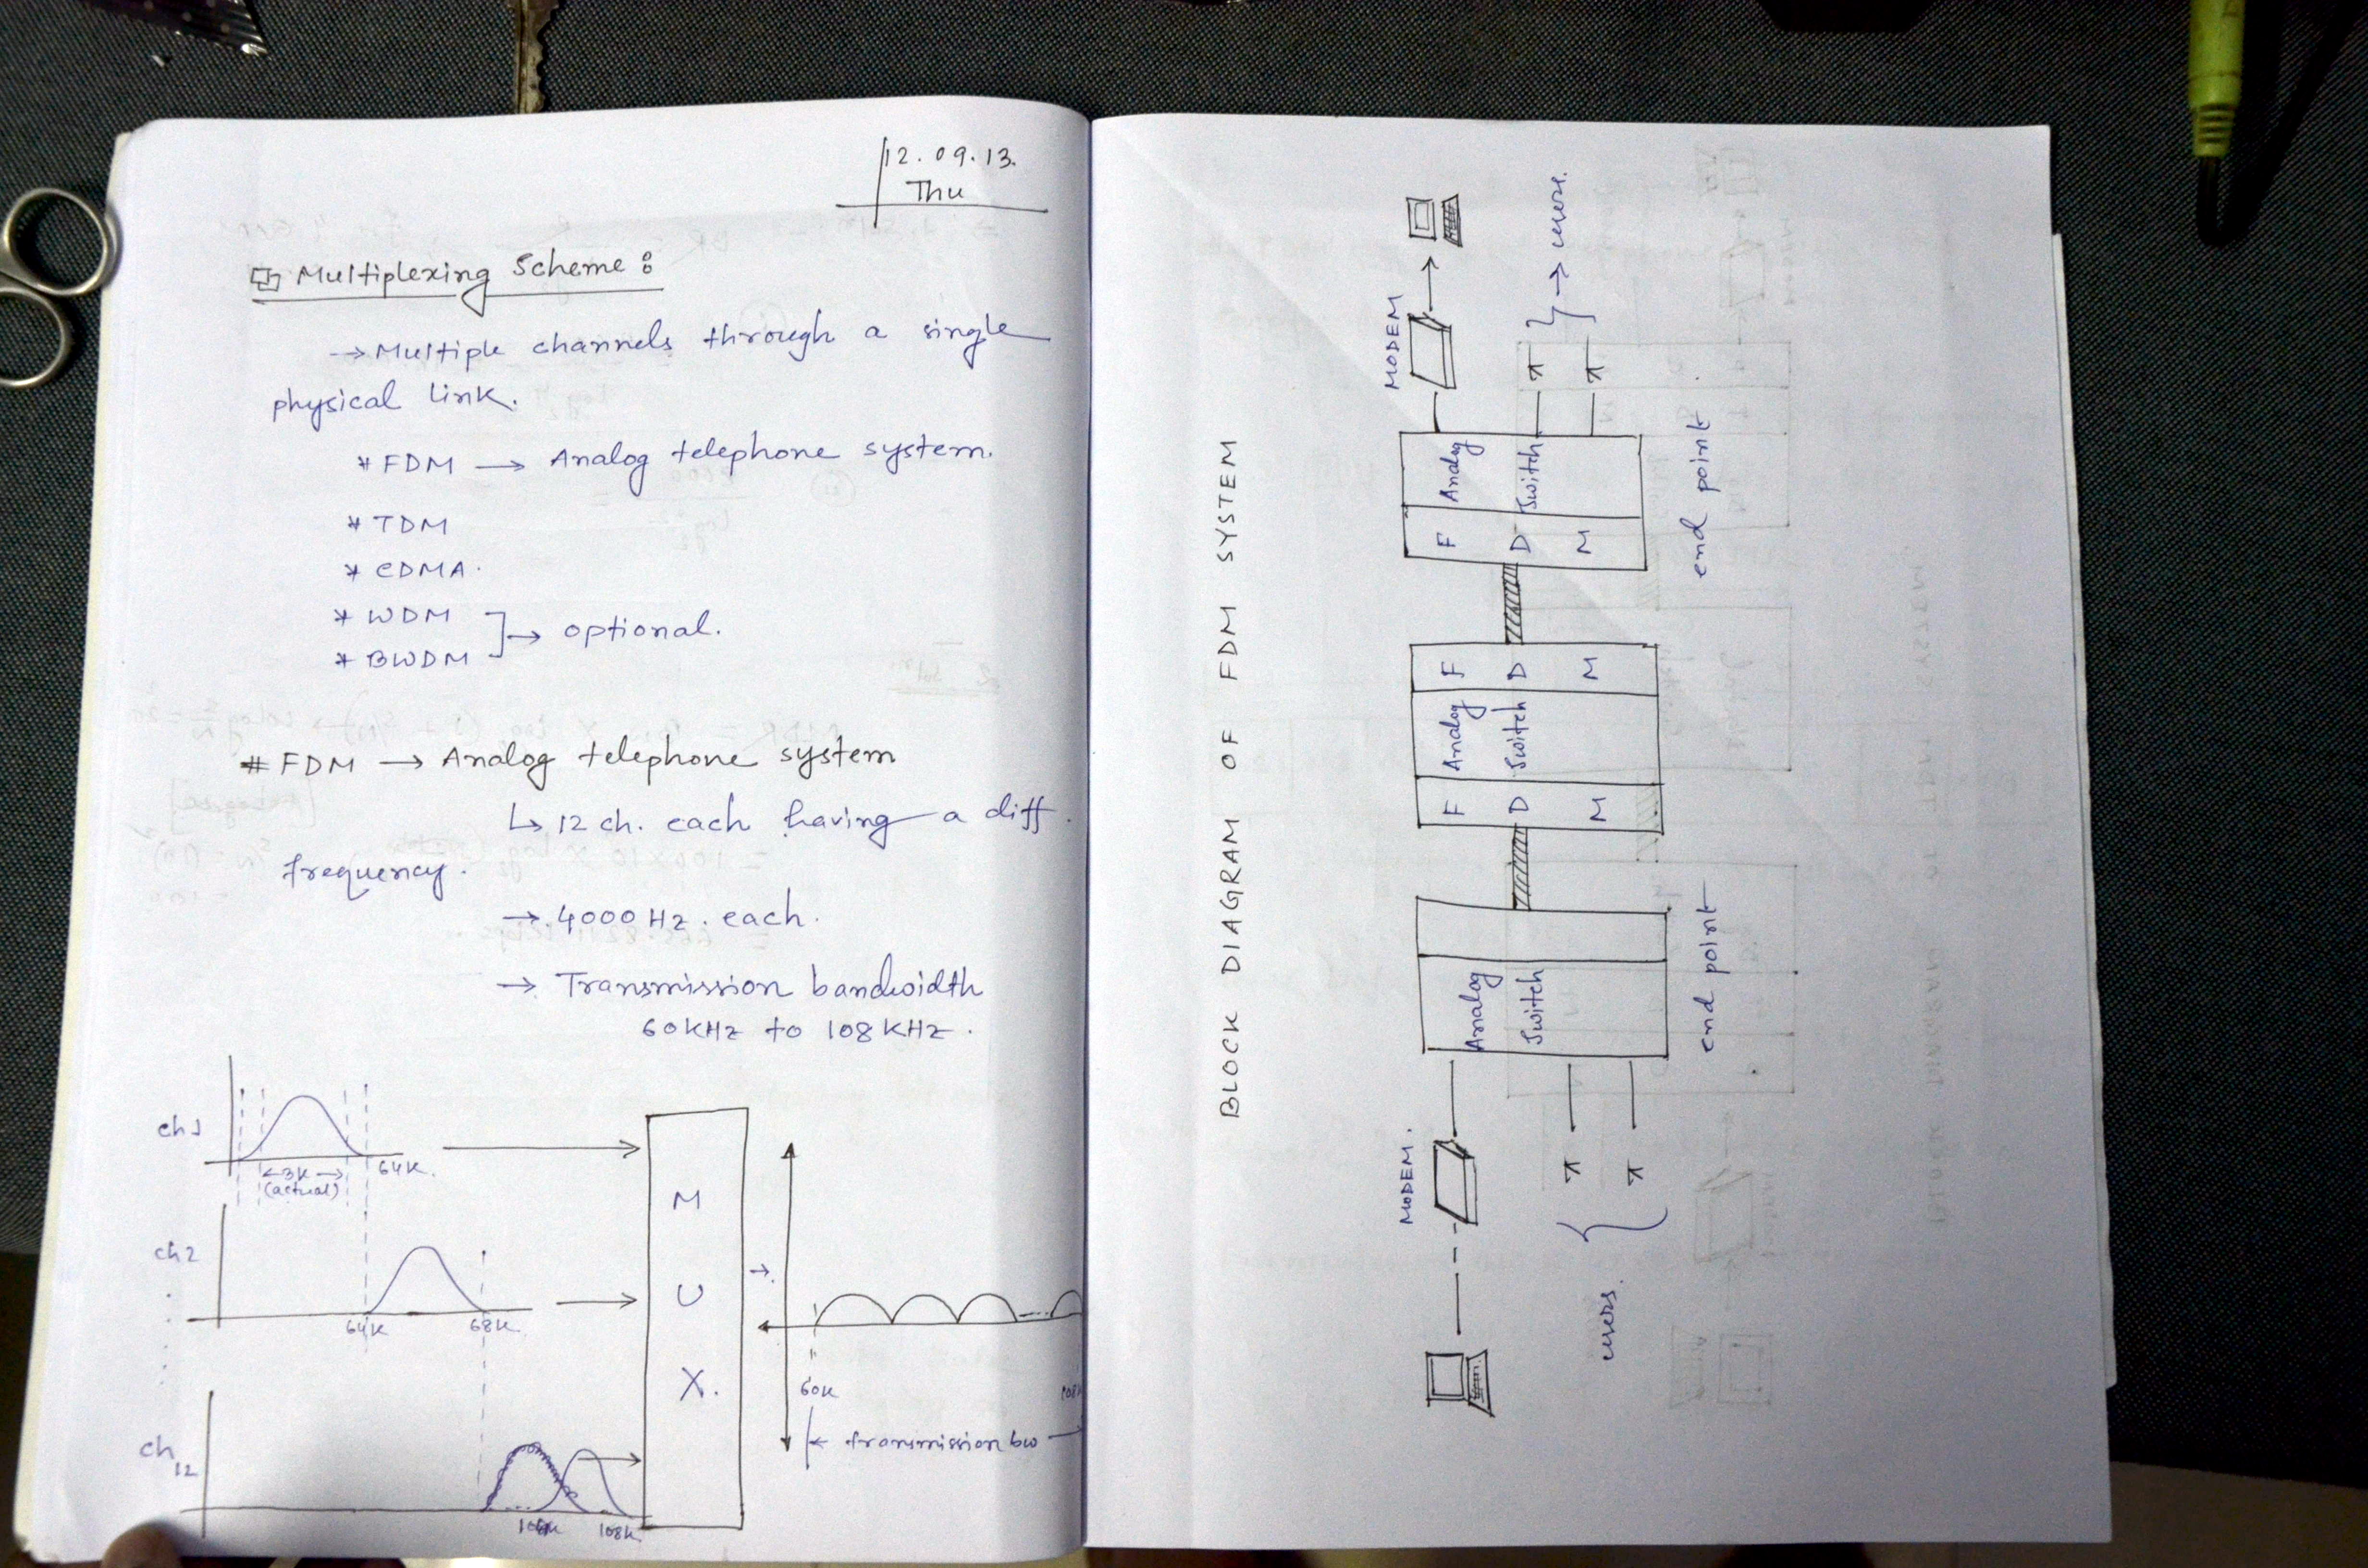 12.09.13.
Thu
Multiplexing Scheme :
→ Multiple channels through a single
physical link.
* FDM → Analog telephone system.
* TDM
* CDMA.
* WDM
* BWDM
→ optional.
# FDM → Analog telephone system
↳ 12 ch. each having a diff.
frequency.
→ 4000 Hz. each.
→ Transmission bandwidth
60KHz to 108KHz.
ch1
←3K→
(actual)
64K.
ch2
64K
68K
ch12
108K
MUX.
→
60K
108K
← transmission bw →
BLOCK DIAGRAM OF FDM SYSTEM
MODEM
→ users.
Analog
Switch
FDM
end point
FDM
Analog
Switch
FDM
Analog
Switch
end point
MODEM.
users.